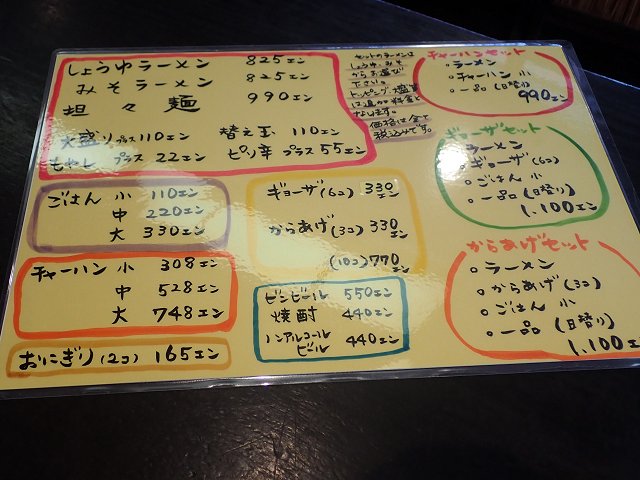 しょうゆラーメン 825エン
みそラーメン 825エン
坦々麺 990エン
大盛りプラス110エン 替え玉 110エン
もやし プラス 22エン ピリ辛 プラス 55エン
セットのラーメンは
しょうゆ・みそ
からお選び
下さい。
トッピング・増量
は追加料金と
なります。
価格は全て
税込みです。
チャーハンセット
○ラーメン
○チャーハン 小
○一品(日替り)
990エン
ギョーザセット
○ラーメン
○ギョーザ(6コ)
○ごはん 小
○一品(日替り)
1,100エン
からあげセット
○ラーメン
○からあげ(3コ)
○ごはん 小
○一品(日替り)
1,100エン
ごはん 小 110エン
中 220エン
大 330エン
チャーハン 小 308エン
中 528エン
大 748エン
おにぎり(2コ) 165エン
ギョーザ(6コ) 330エン
からあげ(3コ) 330エン
(10コ) 770エン
ビンビール 550エン
焼酎 440エン
ノンアルコール
ビール 440エン